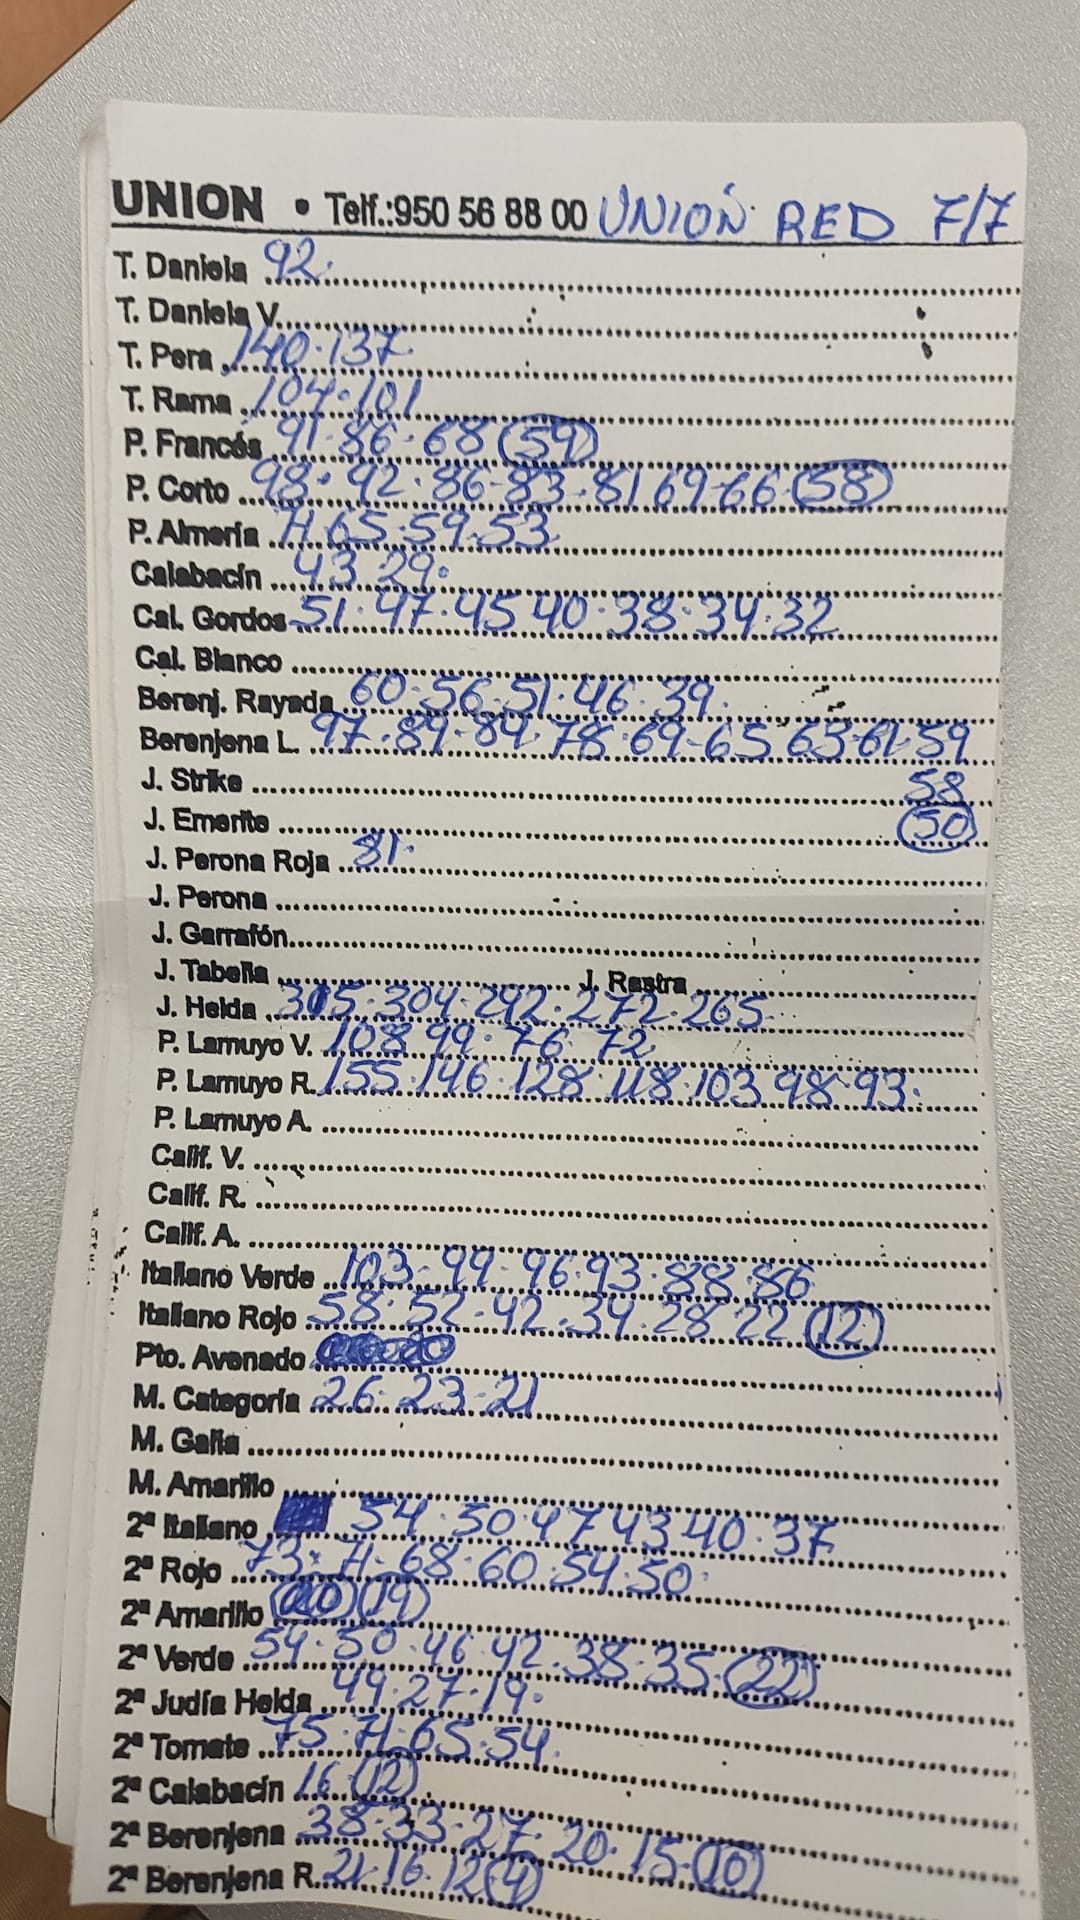 UNION • Telf.:950 56 88 00 UNIÓN RED 7/7
T. Daniela 92.
T. Daniela V.
T. Pera 140.137
T. Rama 104.101
P. Francés 91.86.68 (59)
P. Corto 98.92.86-83.81 69-66 (58)
P. Almería 71.65.59.53
Calabacín 43 29.
Cal. Gordos 51.47.45 40.38.34.32
Cal. Blanco
Berenj. Rayada 60.56.51.46.39.
Berenjena L. 97.89-84.78.69-65 63-61.59
J. Strike 58
J. Emerite (50)
J. Perona Roja 81.
J. Perona
J. Garrafón
J. Tabella J. Rastra
J. Helda 315.304.292.272.265
P. Lamuyo V. 108 99.76 72
P. Lamuyo R. 155.146.128.118.103 98.93.
P. Lamuyo A.
Calif. V.
Calif. R.
Calif. A.
Italiano Verde 103-99-96.93.88.86
Italiano Rojo 58.52-42.34.28.22 (12)
Pto. Avenado
M. Categoría 26.23-21
M. Galia
M. Amarillo
2ª Italiano 54.50.47 43 40.37
2ª Rojo 73.71-68.60.54.50.
2ª Amarillo (19)
2ª Verde 54.50.46.42.38-35.(22)
2ª Judía Helda 49.27.19.
2ª Tomate 75.71-65.54.
2ª Calabacín 16 (12)
2ª Berenjena 38.33-27.20.15.(10)
2ª Berenjena R. 21.16.12(4)